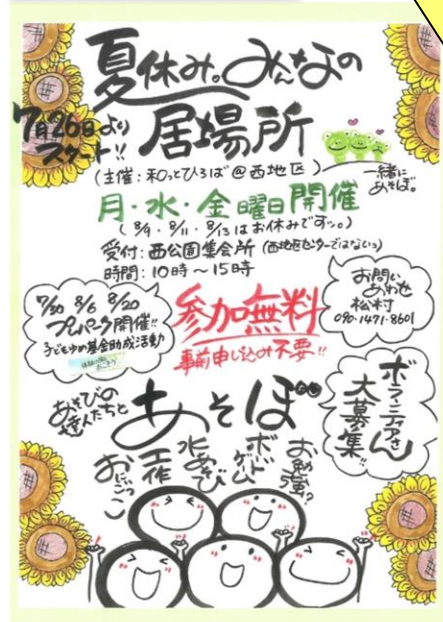 夏休み。みんなの
居場所
7月26日より
スタート!!
(主催:和っとひろば@西地区)
一緒に
あそぼ。
月・水・金曜日開催
(8/9・8/11・8/13はお休みです。)
受付:西公園集会所(西地区センターではないよ)
時間:10時〜15時
7/30 8/6 8/20
プレーパーク開催!!
子どもゆめ基金助成活動
参加無料
事前申し込み不要!!
お問い
あわせ
松村
090-1471-8601
あそびの
達人たちと
あそぼ
ボランティアさん
大募集!!
お勉強?
ボードゲーム
水あそび
工作
おにごっこ